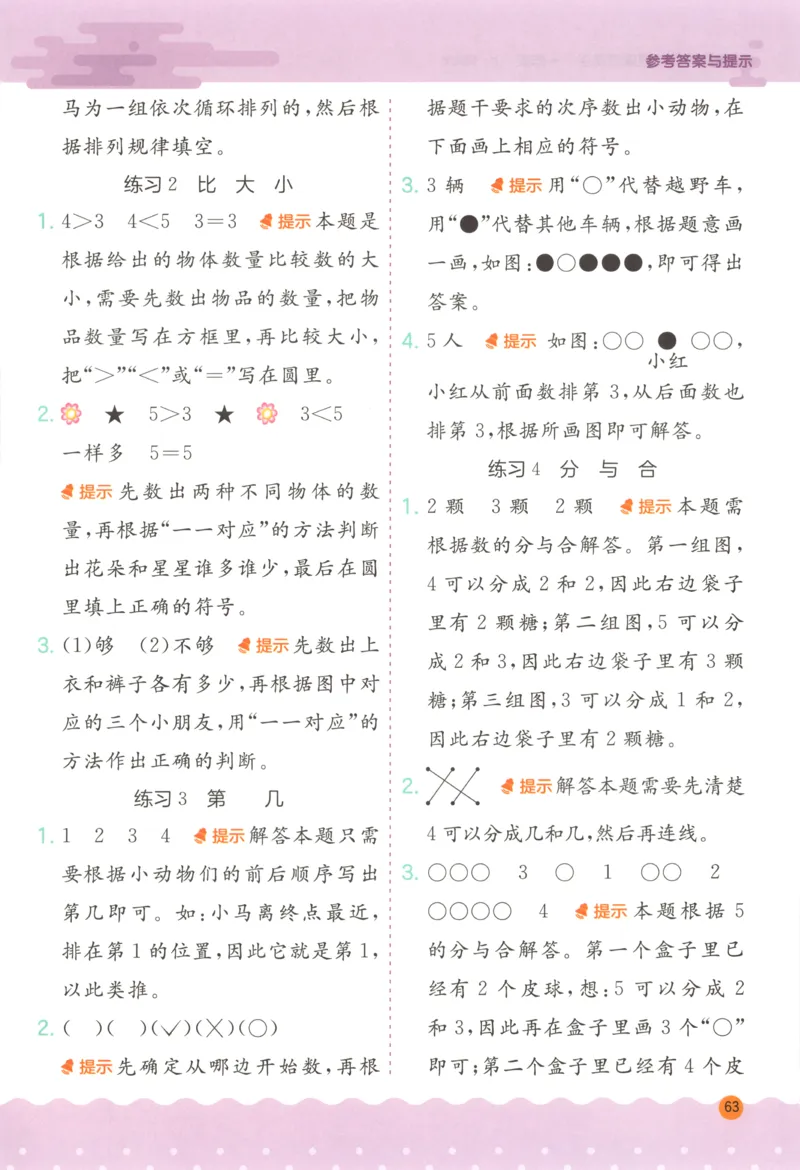 参考答案与提示
马为一组依次循环排列的,然后根
据排列规律填空。
练习2 比 大 小
1. 4>3 4<5 3=3 提示 本题是
根据给出的物体数量比较数的大
小,需要先数出物品的数量,把物
品数量写在方框里,再比较大小,
把“>”“<”或“=”写在圆里。
2. ★ 5>3 ★ 3<5
一样多 5=5
提示 先数出两种不同物体的数
量,再根据“一一对应”的方法判断
出花朵和星星谁多谁少,最后在圆
里填上正确的符号。
3. (1)够 (2)不够 提示 先数出上
衣和裤子各有多少,再根据图中对
应的三个小朋友,用“一一对应”的
方法作出正确的判断。
练习3 第 几
1. 1 2 3 4 提示 解答本题只需
要根据小动物们的前后顺序写出
第几即可。如:小马离终点最近,
排在第1的位置,因此它就是第1,
以此类推。
2. ( )( )(✓)(╳)(○)
提示 先确定从哪边开始数,再根
据题干要求的次序数出小动物,在
下面画上相应的符号。
3. 3 辆 提示 用“○”代替越野车,
用“●”代替其他车辆,根据题意画
一画,如图:●○●●●,即可得出
答案。
4. 5人 提示 如图:○○ ● ○○,
小红
小红从前面数排第3,从后面数也
排第3,根据所画图即可解答。
练习4 分 与 合
1. 2颗 3颗 2颗 提示 本题需
根据数的分与合解答。第一组图,
4可以分成2和2,因此右边袋子
里有2颗糖;第二组图,5可以分
成2和3,因此右边袋子里有3颗
糖;第三组图,3可以分成1和2,
因此右边袋子里有2颗糖。
2. 提示 解答本题需要先清楚
4可以分成几和几,然后再连线。
3. ○○○ 3 ○ 1 ○○ 2
○○○○ 4 提示 本题根据5
的分与合解答。第一个盒子里已
经有2个皮球,想:5可以分成2
和3,因此再在盒子里画3个“○”
即可;第二个盒子里已经有4个皮
63